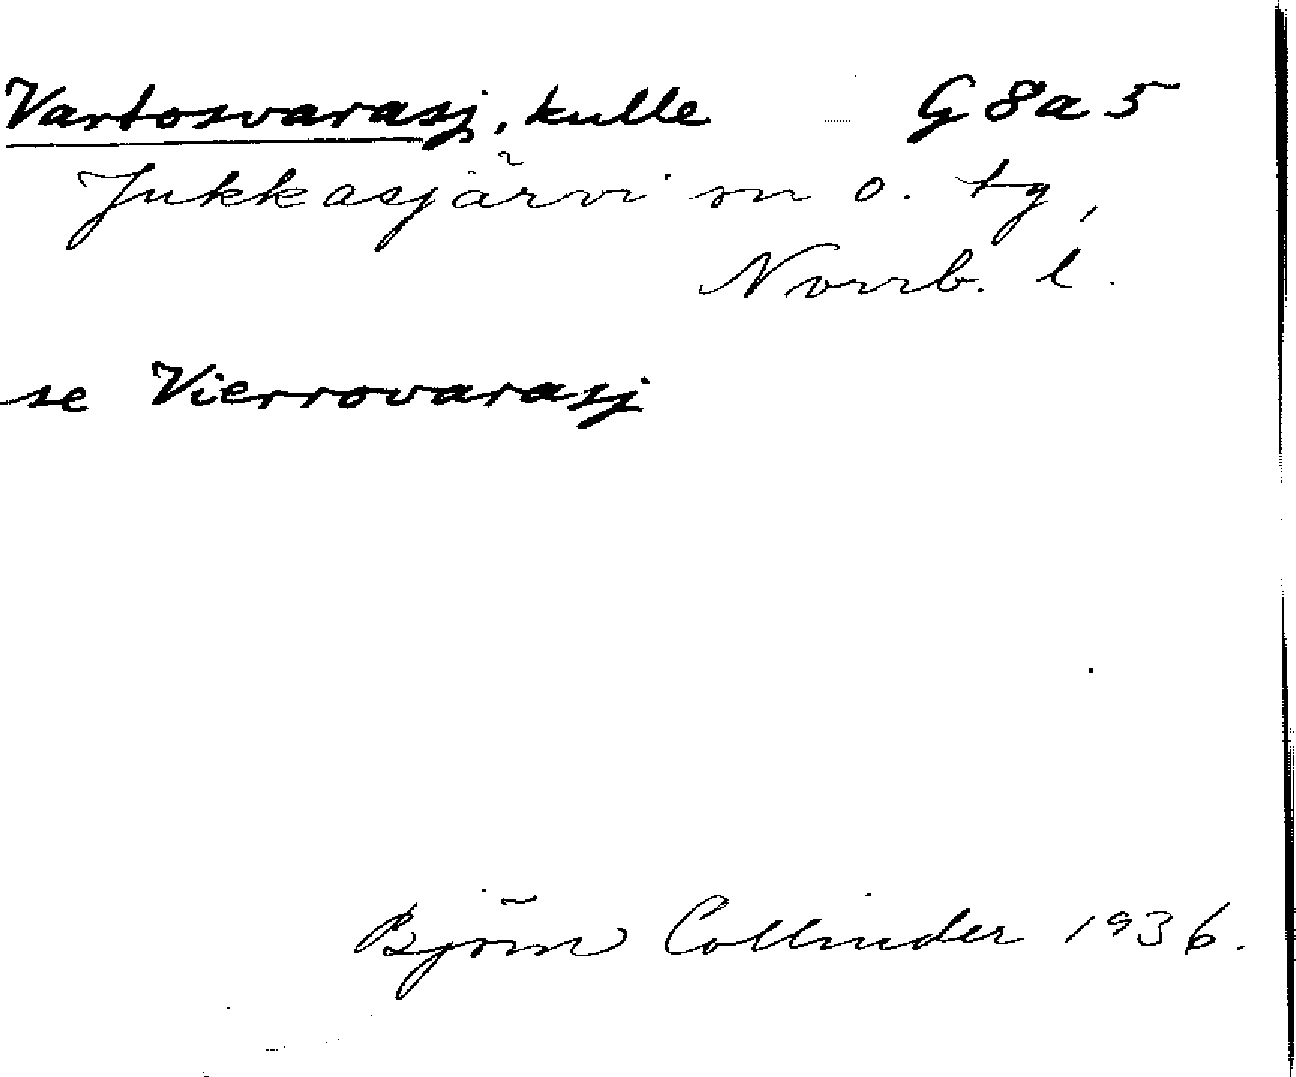 Vartosvarasj, kulle G 8 a 5
Jukkasjärvi sn o. tg,
Norrb. l.
se Vierrovarasj
Björn Collinder 1936.